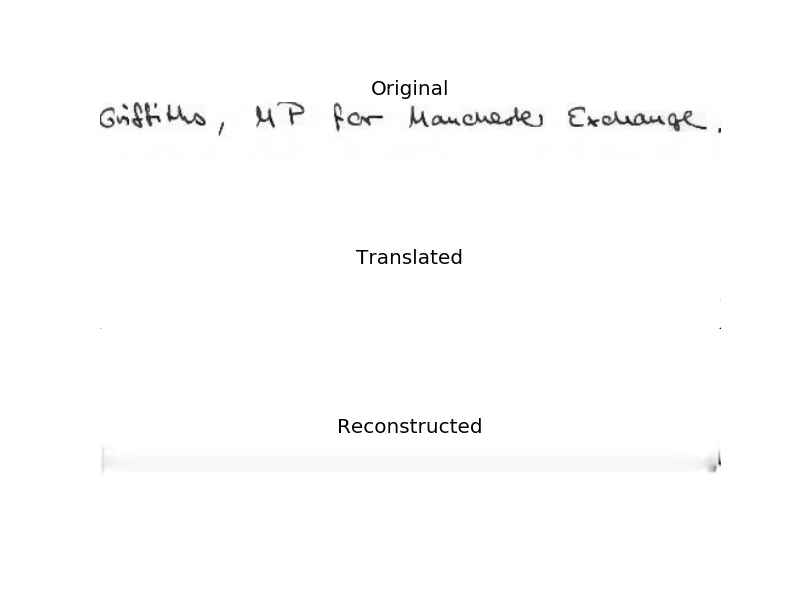 Original
Griffiths, MP for Manchester Exchange.
Translated
Reconstructed